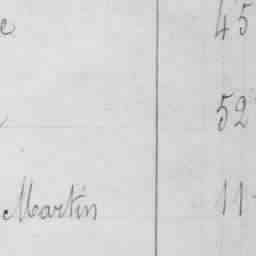 e 45
52
Martin 11